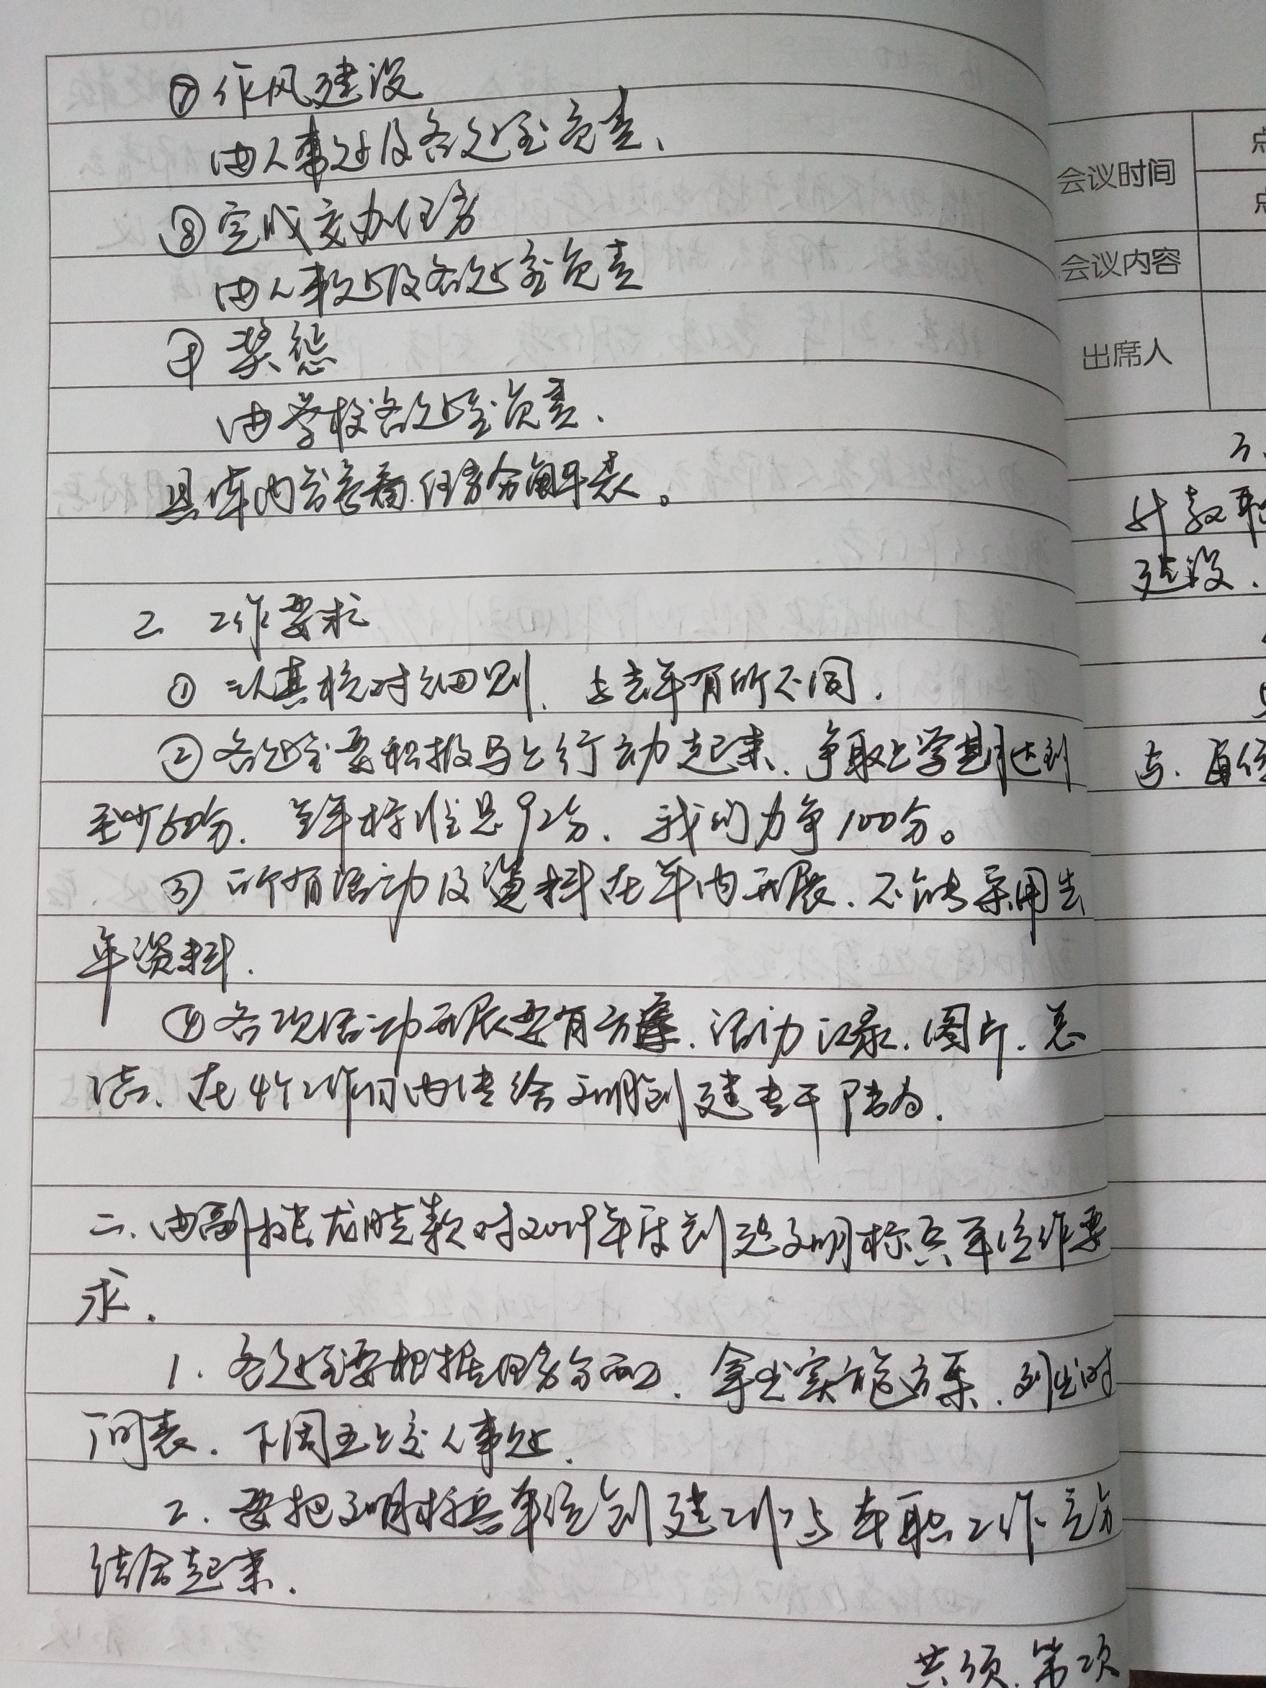 ⑦作风建设
由人事处及各处室负责、
⑧完成交办任务
由人事处及各处室负责
⑨奖惩
由学校各处室负责.
具体内容查看任务分解表。
2. 工作要求
① 认真核对细则、与去年有所不同.
②各处室要积极马上行动起来、争取上学期达到
至少60分、全年标准是92分、我们力争100分。
③ 所有活动及资料在年内开展、不能采用去
年资料.
④各项活动开展要有方案、活动记录、图片、总
结、在4个工作日内传给文明创建专干
二、由副校长对2019年度创建文明标兵单位作要
求.
1. 各处室要根据任务分配、拿出实施方案、列出时
间表、下周五上交人事处.
2. 要把文明标兵单位创建工作与本职工作充分
结合起来.
共 项、第2项
会议时间
点
点
会议内容
出席人
建设.